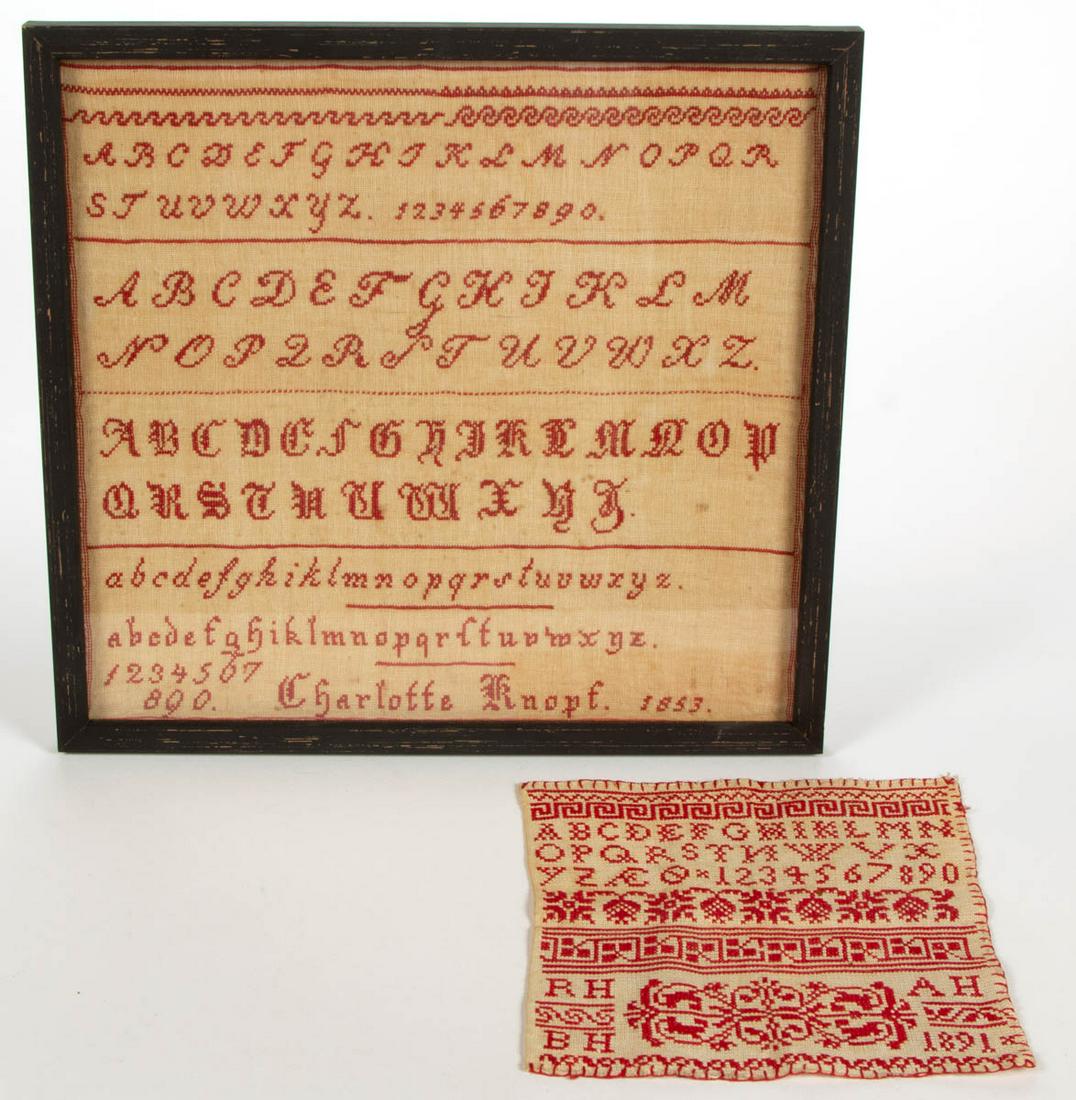 A B C D E F G H I K L M N O P Q R
S T U V W X Y Z. 1234567890.
A B C D E F G H I K L M
N O P Q R S T U V W X Z.
A B C D E F G H I K L M N O P
Q R S T U V W X Y Z.
abcdefghiklmnopqrstuvwxyz.
abcdefghiklmnopqrſtuvwxyz.
1234567
890. Charlotte Knopf. 1853.
ABCDEFGHIKLMN
OPQRSTUWVX
YZÆØ×1234567890
RH AH
BH 1891×